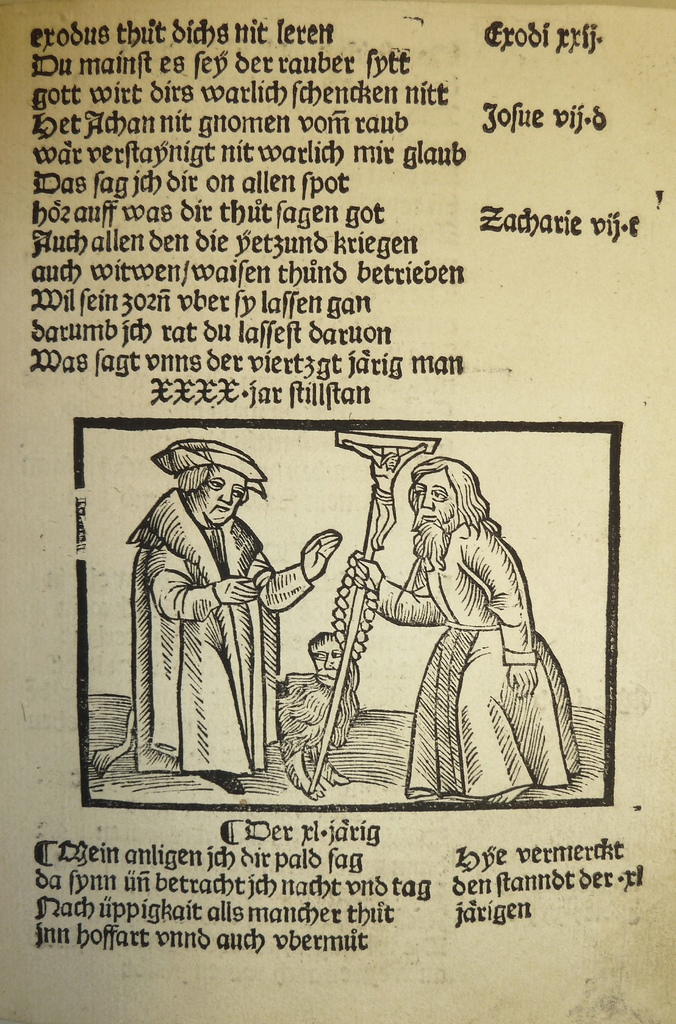 exodus thůt dichs nit leren
Exodi xxij.
Du mainst es seÿ der rauber sytt
gott wirt dirs warlich schencken nitt
Het Achan nit gnomen vom̄ raub
Josue vij.d
wär verstaÿnigt nit warlich mir glaub
Das sag jch dir on allen spot
hör auff was dir thůt sagen got
Zacharie vij.c
Auch allen den die ÿetzund kriegen
auch witwen/waisen thůnd betrieben
Wil sein zorn̄ vber sy lassen gan
darumb jch rat du lassest daruon
Was sagt vnns der viertzgt järig man
XXXX.jar stillstan
¶ Der xl.järig
¶ Mein anligen jch dir pald sag
Hÿe vermerckt
da synn üñ betracht jch nacht vnd tag
den stanndt der .xl
Nach üppigkait alls mancher thůt
järigen
jnn hoffart vnnd auch vbermůt